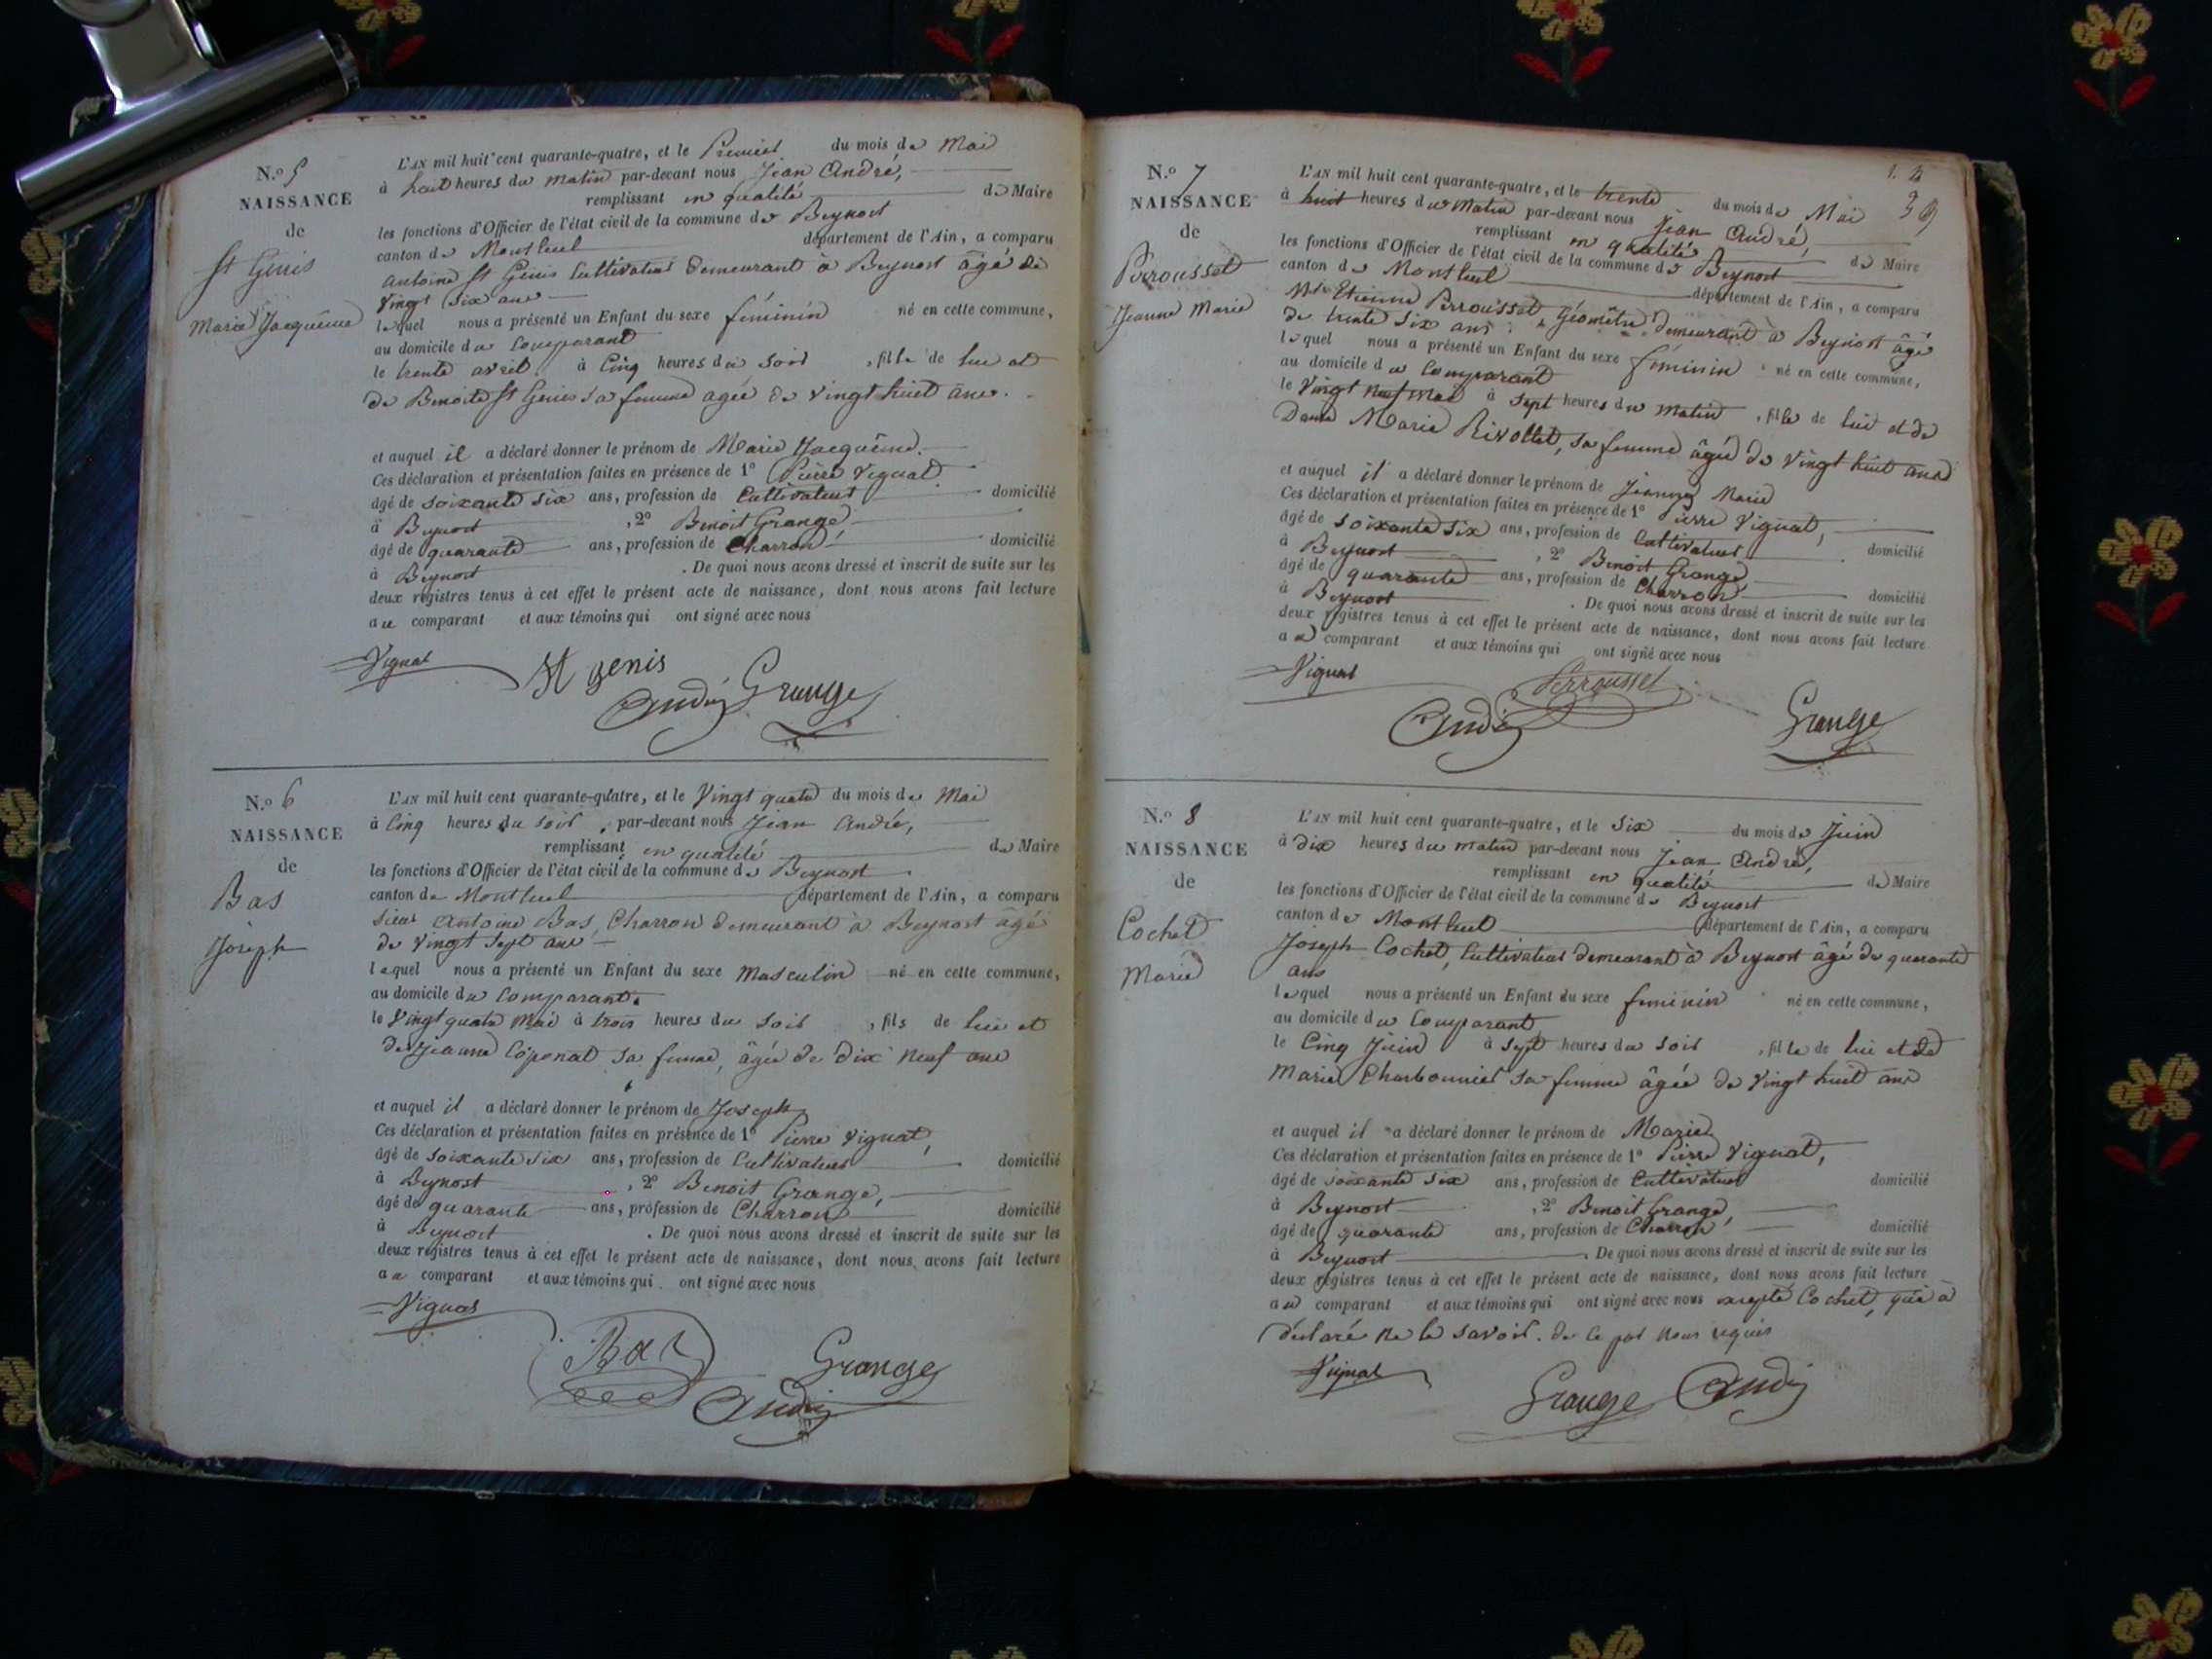 N.o 5
NAISSANCE
de
St Genis
Marie Jacqueme
L'AN mil huit cent quarante-quatre, et le Premier du mois de Mai
à huit heures du matin par-devant nous Jean André,
remplissant en qualité de Maire
les fonctions d'Officier de l'état civil de la commune de Beynost
canton de Montluel département de l'Ain, a comparu
antoine St Genis Cultivateur demeurant à Beynost âgé de
vingt six ans
lequel nous a présenté un Enfant du sexe féminin né en cette commune,
au domicile du Comparant
le trente avril à Cinq heures du soir , fille de lui et
de Benoite St Genis sa femme agée de vingt huit ans.
et auquel il a déclaré donner le prénom de Marie Jacqueme.
Ces déclaration et présentation faites en présence de 1o Pierre Vignat
âgé de soixante six ans, profession de Cultivateur domicilié
à Beynost , 2o Benoit Grange,
âgé de quarante ans, profession de Charron domicilié
à Beynost . De quoi nous avons dressé et inscrit de suite sur les
deux registres tenus à cet effet le présent acte de naissance, dont nous avons fait lecture
au comparant et aux témoins qui ont signé avec nous
Vignat St genis
André Grange
N.o 6
NAISSANCE
de
Bas
Joseph
L'AN mil huit cent quarante-quatre, et le Vingt quatre du mois de Mai
à Cinq heures du soir , par-devant nous Jean André,
remplissant en qualité de Maire
les fonctions d'Officier de l'état civil de la commune de Beynost
canton de Montluel département de l'Ain, a comparu
Sieur Antoine Bas, Charron demeurant à Beynost âgé
de vingt sept ans
lequel nous a présenté un Enfant du sexe Masculin né en cette commune,
au domicile du Comparant.
le Vingt quatre Mai à trois heures du soir , fils de lui et
de Jeanne Coponat sa femme, âgée de dix neuf ans
et auquel il a déclaré donner le prénom de Joseph
Ces déclaration et présentation faites en présence de 1o Pierre Vignat,
âgé de soixante six ans, profession de Cultivateur domicilié
à Beynost , 2o Benoit Grange,
âgé de quarante ans, profession de Charron domicilié
à Beynost . De quoi nous avons dressé et inscrit de suite sur les
deux registres tenus à cet effet le présent acte de naissance, dont nous avons fait lecture
au comparant et aux témoins qui ont signé avec nous
Vignat
Bas Grange
André
N.o 7
NAISSANCE
de
Perrousset
Jeanne Marie
L'AN mil huit cent quarante-quatre, et le trente du mois de Mai
à huit heures du Matin par-devant nous Jean André,
remplissant en qualité de Maire
les fonctions d'Officier de l'état civil de la commune de Beynost
canton de Montluel département de l'Ain, a comparu
Etienne Perrousset, Géomètre demeurant à Beynost âgé
de trente six ans
lequel nous a présenté un Enfant du sexe féminin né en cette commune,
au domicile du Comparant
le Vingt neuf mai à sept heures du matin , fille de lui et de
Dame Marie Rivollet, sa femme âgée de vingt huit ans
et auquel il a déclaré donner le prénom de Jeanne Marie
Ces déclaration et présentation faites en présence de 1o Pierre Vignat,
âgé de soixante six ans, profession de Cultivateur domicilié
à Beynost , 2o Benoit Grange,
âgé de quarante ans, profession de Charron domicilié
à Beynost . De quoi nous avons dressé et inscrit de suite sur les
deux registres tenus à cet effet le présent acte de naissance, dont nous avons fait lecture
au comparant et aux témoins qui ont signé avec nous
Vignat Perrousset
André Grange
N.o 8
NAISSANCE
de
Cochet
Marie
L'AN mil huit cent quarante-quatre, et le Six du mois de Juin
à Dix heures du matin par-devant nous Jean André,
remplissant en qualité de Maire
les fonctions d'Officier de l'état civil de la commune de Beynost
canton de Montluel département de l'Ain, a comparu
Joseph Cochet, Cultivateur demeurant à Beynost âgé de quarante
ans
lequel nous a présenté un Enfant du sexe feminin né en cette commune,
au domicile du Comparant
le Cinq Juin à sept heures du soir , fille de lui et de
Marie Charbonnier sa femme âgée de vingt huit ans
et auquel il a déclaré donner le prénom de Marie
Ces déclaration et présentation faites en présence de 1o Pierre Vignat,
âgé de soixante six ans, profession de Cultivateur domicilié
à Beynost , 2o Benoit Grange,
âgé de quarante ans, profession de Charron domicilié
à Beynost . De quoi nous avons dressé et inscrit de suite sur les
deux registres tenus à cet effet le présent acte de naissance, dont nous avons fait lecture
au comparant et aux témoins qui ont signé avec nous excepté Cochet, qui a
déclaré ne le savoir. de ce par nous requis
Vignat
Grange André